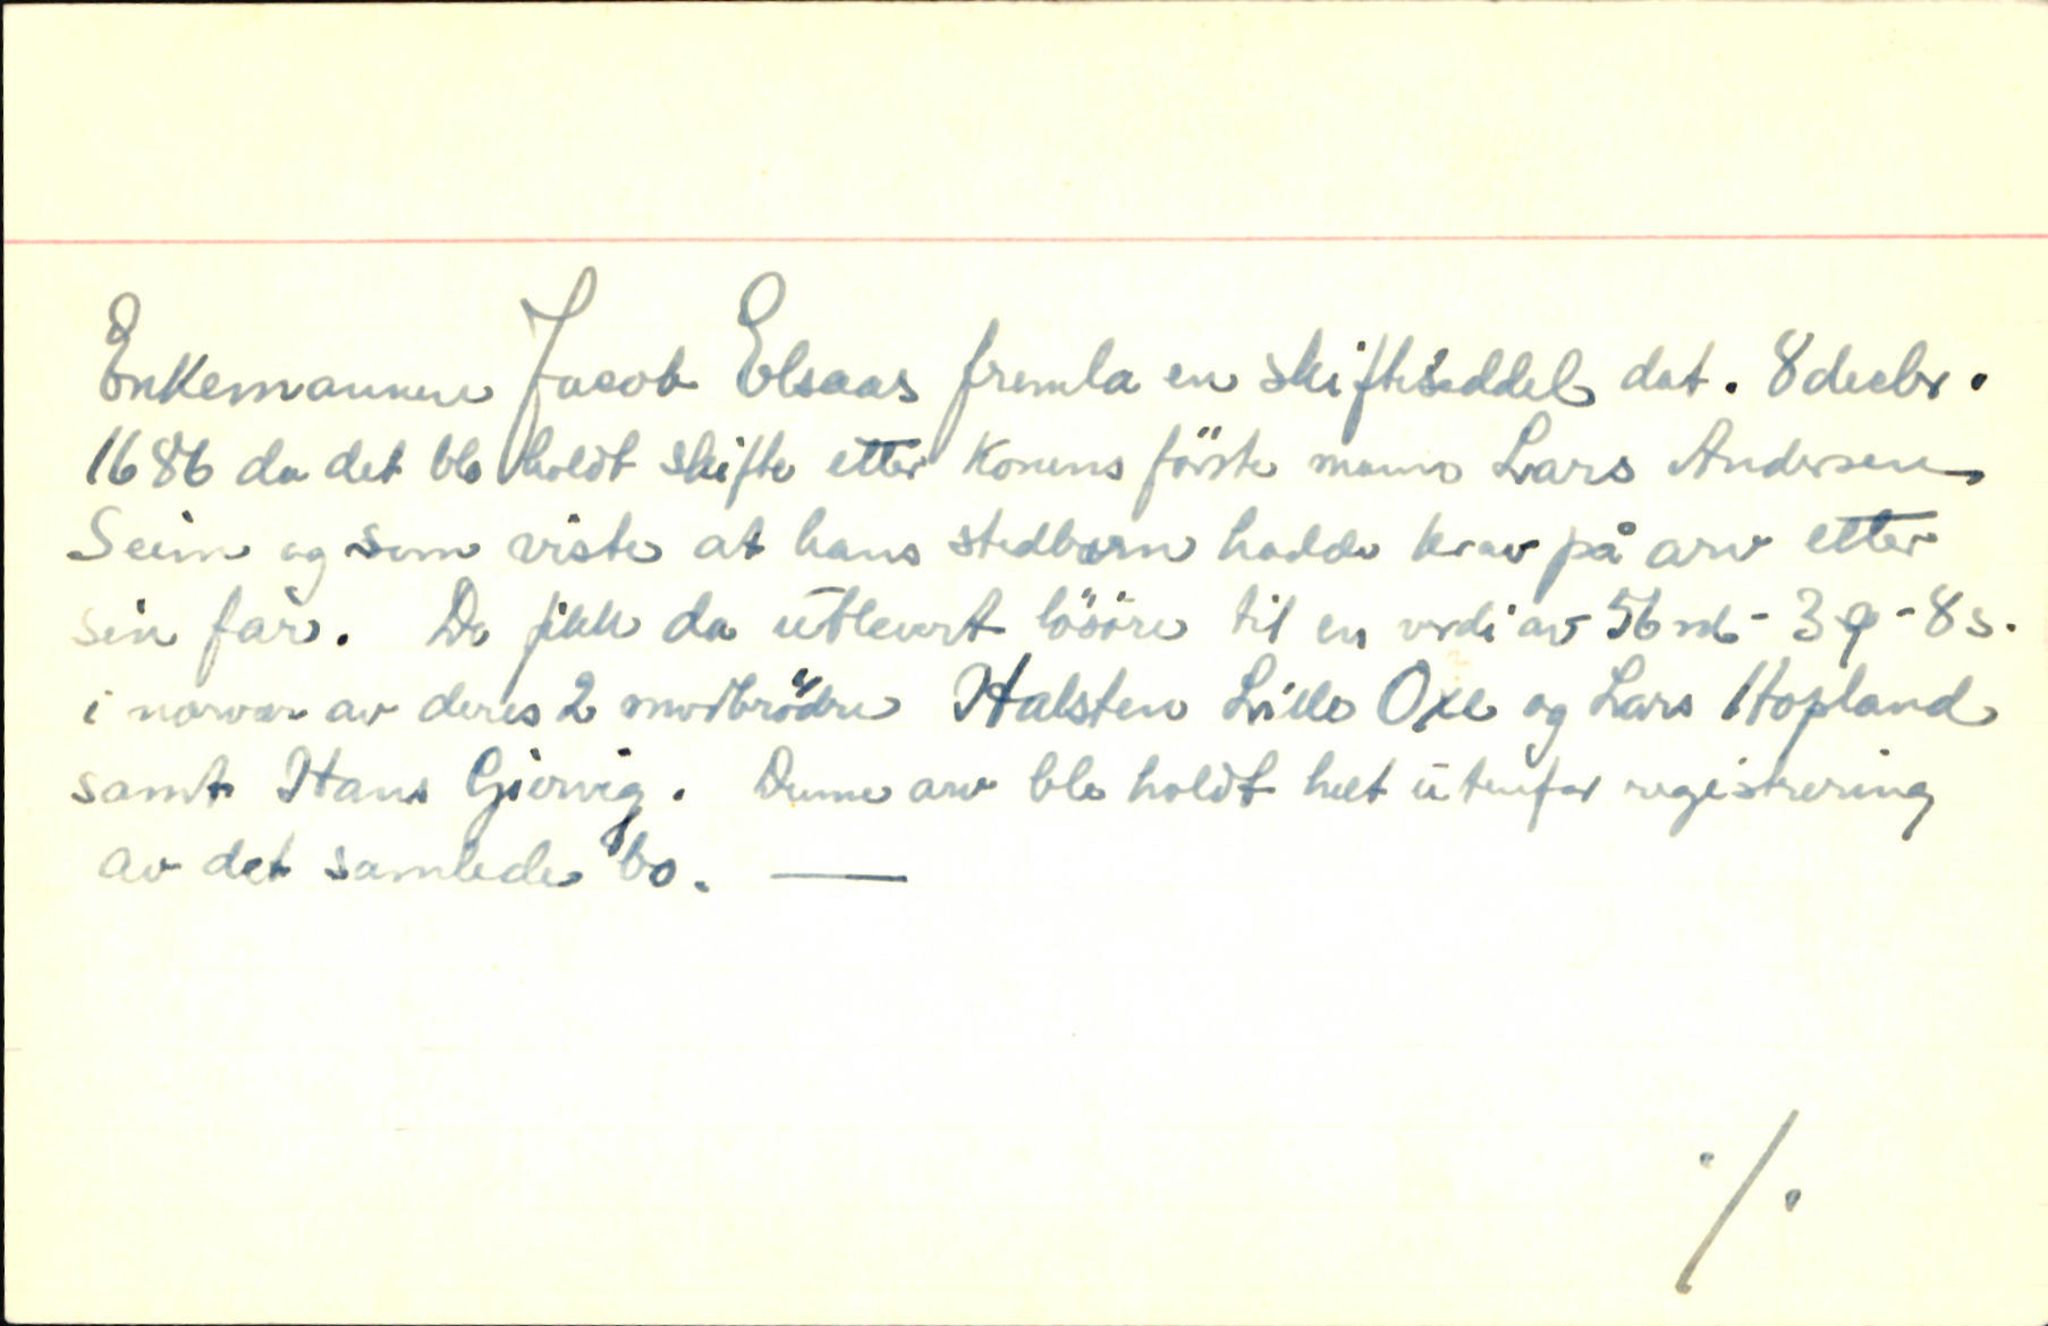 Enkemannen Jacob Elsaas fremla en skifteseddel dat. 8 decbr.
1686 da det ble holdt skifte etter konens første mann Lars Andersen
Seim og som viste at hans stedbarn hadde krav på arv etter
sin far. De fikk da utlevert løsøre til en verdi av 56 rd - 3 q - 8 s.
i nærvær av deres 2 morbrødre Halsten Lille Oxe og Lars Hopland
samt Hans Gjervig. Denne arv ble holdt helt utenfor registrering
av det samlede bo. —
./.